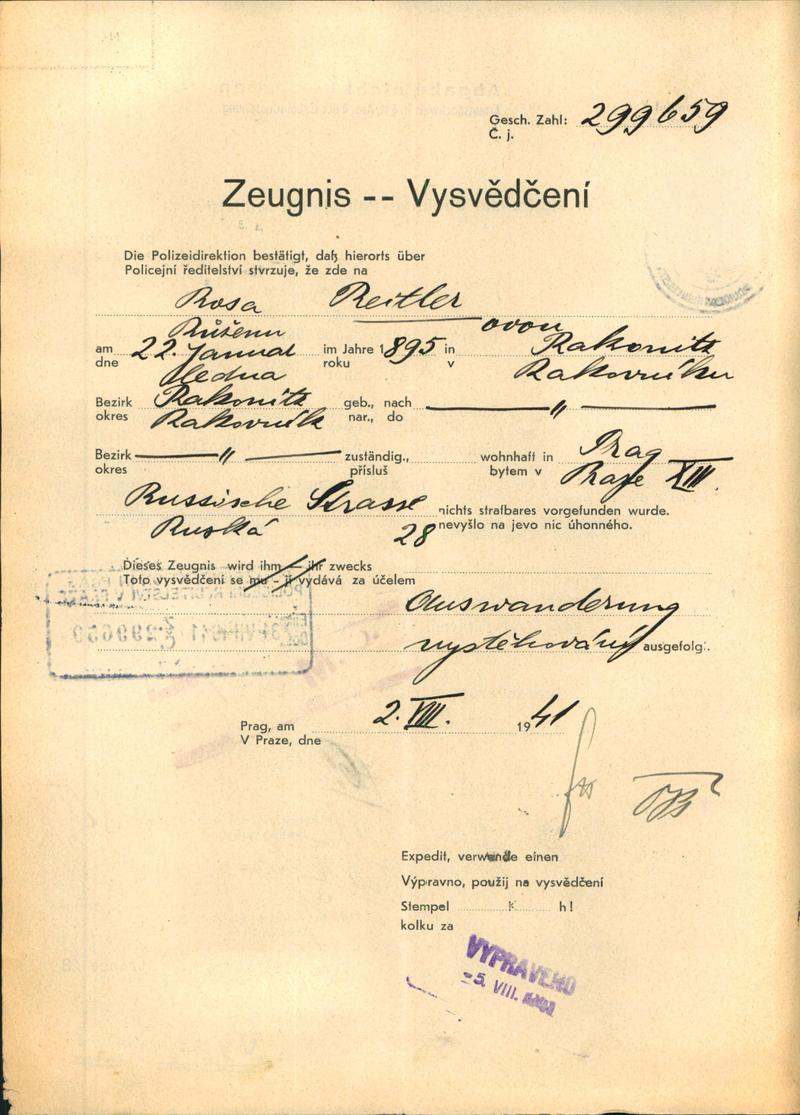 Gesch. Zahl: 299659
Č. j.
Zeugnis -- Vysvědčení
Die Polizeidirektion bestätigt, daß hierorts über
Policejní ředitelství stvrzuje, že zde na
Rosa Reitler
Růženu ovou
am 22. Januar im Jahre 1895 in Rakonitz
dne ledna roku v Rakovníku
Bezirk Rakonitz geb., nach — " —
okres Rakovník nar., do
Bezirk — " — zuständig., wohnhaft in Prag
okres přísluš bytem v Praze XIII.
Russische Strasse nichts strafbares vorgefunden wurde.
Ruská 28 nevyšlo na jevo nic úhonného.
Dieses Zeugnis wird ihm – ihr zwecks
Toto vysvědčení se mu - jí vydává za účelem
Auswanderung
vystěhování ausgefolg.
Prag, am 2. VIII. 1941
V Praze, dne
Expedit, verwende einen
Výpravno, použij na vysvědčení
Stempel K h!
kolku za
VYPRAVENO
-5. VIII.